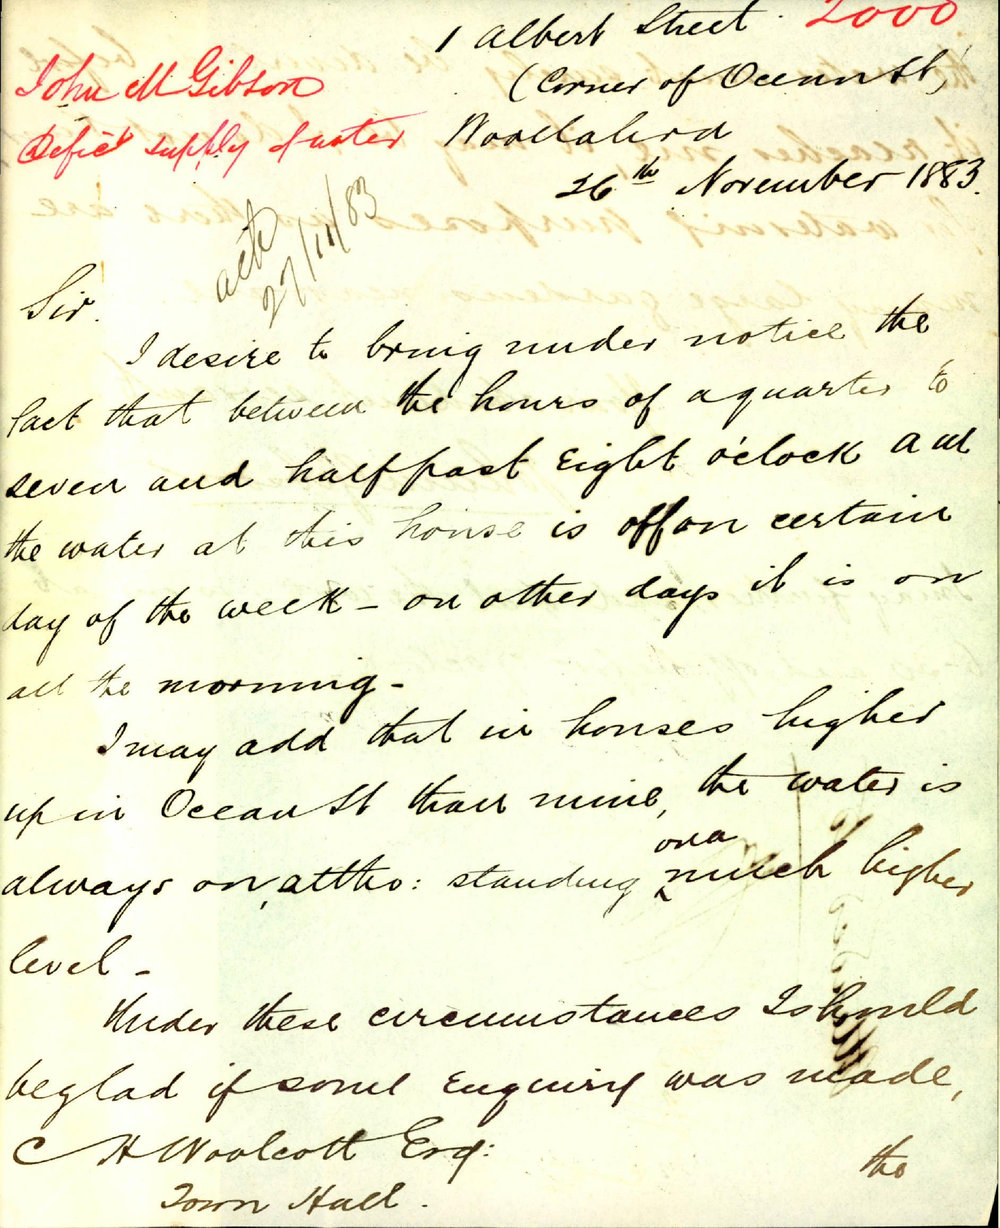 2000
1 Albert Street
(Corner of Ocean St)
Woollahra
26th November 1883.
John M Gibson
Defict supply of water
ack
27/11/83
Sir.
I desire to bring under notice the
fact that between the hours of a quarter to
seven and half past Eight o'clock a m
the water at this house is off on certain
day of the week - on other days it is on
all the morning -
I may add that in houses higher
up in Ocean St than mine, the water is
always on, altho: standing on a much higher
level -
Under these circumstances I should
be glad if some Enquiry was made,
C H Woolcott Esq:
Town Hall.
the